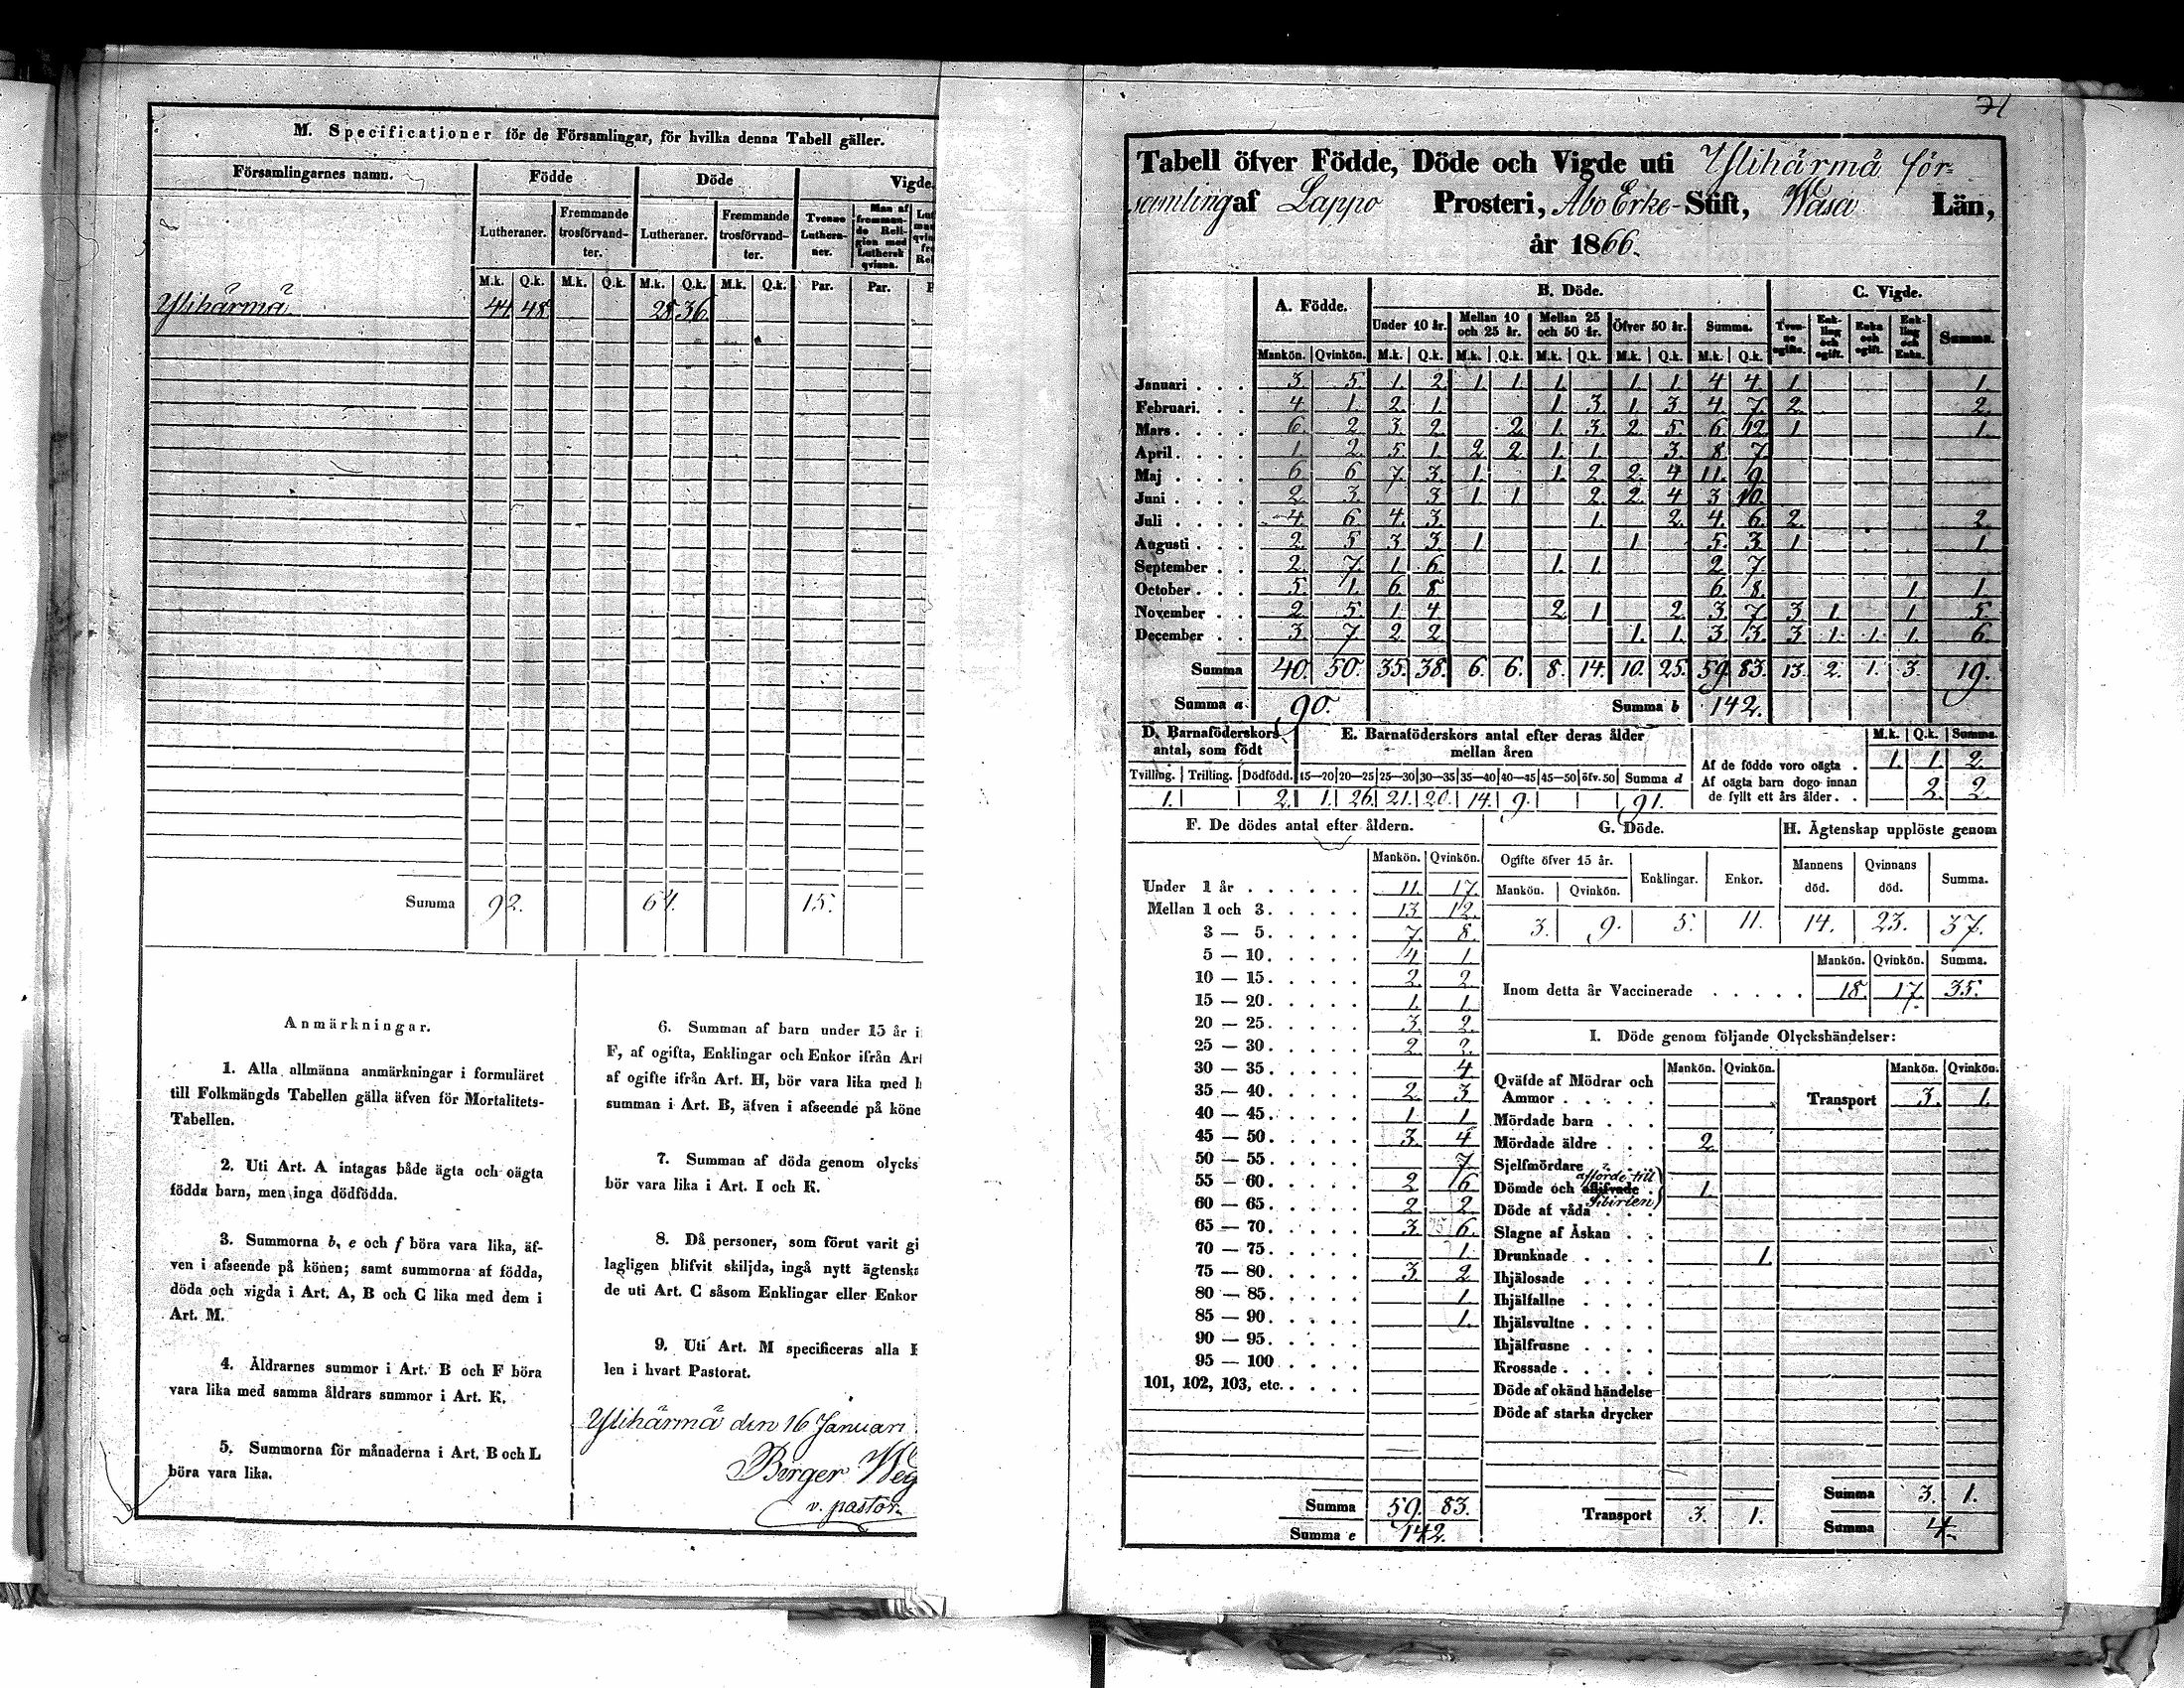 M. Specificationer för de Församlingar, för hvilka denna Tabell gäller.
Församlingarnes namn. Födde Döde Vigde.
Lutheraner. Fremmande trosförvandter. Lutheraner. Fremmande trosförvandter. Tvenne Lutheraner. Man af fremmande Religion med Luthersk qvinna.
M.k. Q.k. M.k. Q.k. M.k. Q.k. M.k. Q.k. Par. Par.
Ylihärmä 44 48. 28 36.
Summa 92. 64. 15.
Anmärkningar.
1. Alla allmänna anmärkningar i formuläret
till Folkmängds Tabellen gälla äfven för Mortalitets-
Tabellen.
2. Uti Art. A intagas både ägta och oägta
födda barn, men inga dödfödda.
3. Summorna b, e och f böra vara lika, äf-
ven i afseende på könen; samt summorna af födda,
döda och vigda i Art. A, B och C lika med dem i
Art. M.
4. Åldrarnes summor i Art. B och F böra
vara lika med samma åldrars summor i Art. K.
5. Summorna för månaderna i Art. B och L
böra vara lika.
6. Summan af barn under 15 år i
F, af ogifta, Enklingar och Enkor ifrån Art
af ogifte ifrån Art. H, bör vara lika med h
summan i Art. B, äfven i afseende på köne
7. Summan af döda genom olycks
bör vara lika i Art. I och K.
8. Då personer, som förut varit gi
lagligen blifvit skiljda, ingå nytt ägtenska
de uti Art. C såsom Enklingar eller Enkor
9. Uti Art. M specificeras alla
len i hvart Pastorat.
Ylihärmä den 16 Januari
Borger Weg
v. pastor.
71
Tabell öfver Födde, Döde och Vigde uti Ylihärmä för-
samling af Lappo Prosteri, Åbo Erke-Stift, Wasa Län,
år 1866.
A. Födde. B. Döde. C. Vigde.
Under 10 år. Mellan 10 och 25 år. Mellan 25 och 50 år. Öfver 50 år. Summa. Tvenne ogifte. Enkling och ogift. Enka och ogift. Enkling och Enka. Summa.
Mankön. Qvinkön. M.k. Q.k. M.k. Q.k. M.k. Q.k. M.k. Q.k. M.k. Q.k.
Januari . . . 3. 5. 1. 2. 1. 1. 1. 1. 1. 4 4. 1. 1.
Februari. . . 4. 1. 2. 1. 1. 3. 1. 3. 4. 7. 2. 2.
Mars . . . . 6. 2. 3. 2. 2. 1. 3. 2. 5. 6. 12. 1. 1.
April . . . . 1. 2. 5. 1. 2. 2. 1. 1. 3. 8. 7.
Maj . . . . 6 6. 7. 3. 1. 1. 2. 2. 4 11. 9.
Juni . . . . 2. 3. 3. 1. 1. 2. 2. 4 3. 10.
Juli . . . . 4. 6. 4. 3. 1. 2. 4. 6. 2. 2.
Augusti . . . 2. 5. 3. 3. 1. 1. 5. 3. 1. 1.
September . . 2. 7. 1. 6. 1. 1. 2. 7.
October . . . 5. 1. 6. 8. 6. 8. 1. 1.
November . . 2. 5. 1. 4. 2. 1. 2. 3. 7. 3. 1. 1. 5.
December . . 3. 7. 2. 2. 1. 1. 3. 3. 3. 1. 1. 1. 6.
Summa 40. 50. 35. 38. 6. 6. 8. 14. 10. 25. 59. 83. 13. 2. 1. 3. 19.
Summa a 90. Summa b 142.
D. Barnaföderskors antal, som födt
E. Barnaföderskors antal efter deras ålder mellan åren
Tvilling. Trilling. Dödfödd. 15—20 20—25 25—30 30—35 35—40 40—45 45—50 öfv. 50 Summa d
1. 2. 1. 26. 21. 20. 14. 9. 91.
M.k. Q.k. Summa.
Af de födde voro oägta . 1. 1. 2.
Af oägta barn dogo innan
de fyllt ett års ålder . . 2. 2.
F. De dödes antal efter åldern.
Mankön. Qvinkön.
Under 1 år . . . . . . 11. 17.
Mellan 1 och 3. . . . . 13 12.
3 — 5. . . . . 7. 8.
5 — 10. . . . . 4 1.
10 — 15. . . . . 2. 2.
15 — 20. . . . . 1. 1.
20 — 25. . . . . 3. 2.
25 — 30. . . . . 2. 2.
30 — 35. . . . . 4.
35 — 40. . . . . 2. 3
40 — 45. . . . . 1. 1.
45 — 50. . . . . 3. 4
50 — 55. . . . . 7.
55 — 60. . . . . 2. 6
60 — 65. . . . . 2. 2.
65 — 70. . . . . 3. 6.
70 — 75. . . . . 1.
75 — 80. . . . . 3. 2
80 — 85. . . . . 1.
85 — 90. . . . . 1.
90 — 95. . . . .
95 — 100 . . . .
101, 102, 103, etc. . . . .
Summa 59. 83.
Summa e 142.
G. Döde. H. Ägtenskap upplöste genom
Ogifte öfver 15 år. Enklingar. Enkor. Mannens död. Qvinnans död. Summa.
Mankön. Qvinkön.
3. 9. 5. 11. 14. 23. 37.
Mankön. Qvinkön. Summa.
Inom detta år Vaccinerade . . . . . 18. 17. 35.
I. Döde genom följande Olyckshändelser:
Mankön. Qvinkön. Mankön. Qvinkön.
Qväfde af Mödrar och
Ammor . . . . . Transport 3. 1.
Mördade barn . . .
Mördade äldre . . . 2
Sjelfmördare
afförde till
Dömde och aflifvade . 1.
Sibirien
Döde af våda . . .
Slagne af Åskan . .
Drunknade . . . . 1.
Ihjälosade . . . .
Ihjälfallne . . . .
Ihjälsvultne . . . .
Ihjälfrusne . . . .
Krossade . . . . .
Döde af okänd händelse
Döde af starka drycker
Summa 3. 1.
Transport 3. 1. Summa 4.